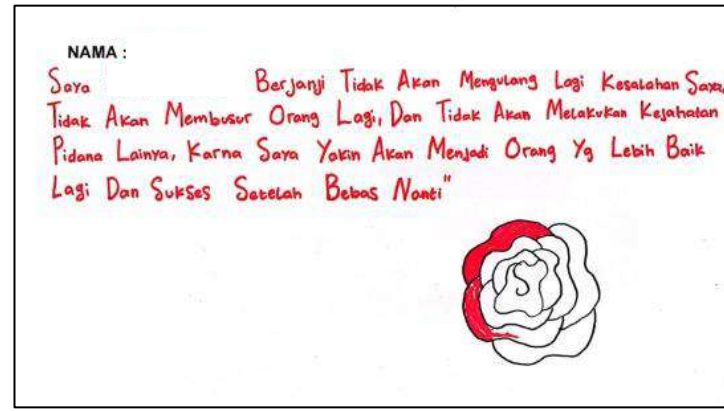 NAMA :
Saya Berjanji Tidak Akan Mengulang Lagi Kesalahan Saya,
Tidak Akan Membusur Orang Lagi, Dan Tidak Akan Melakukan Kejahatan
Pidana Lainya, Karna Saya Yakin Akan Menjadi Orang Yg Lebih Baik
Lagi Dan Sukses Setelah Bebas Nanti"